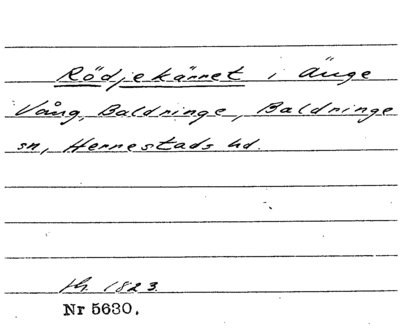 Rödjekärret i Änge
Vång, Baldringe, Baldringe
sn, Herrestads hd.
1823.
Nr 5630.